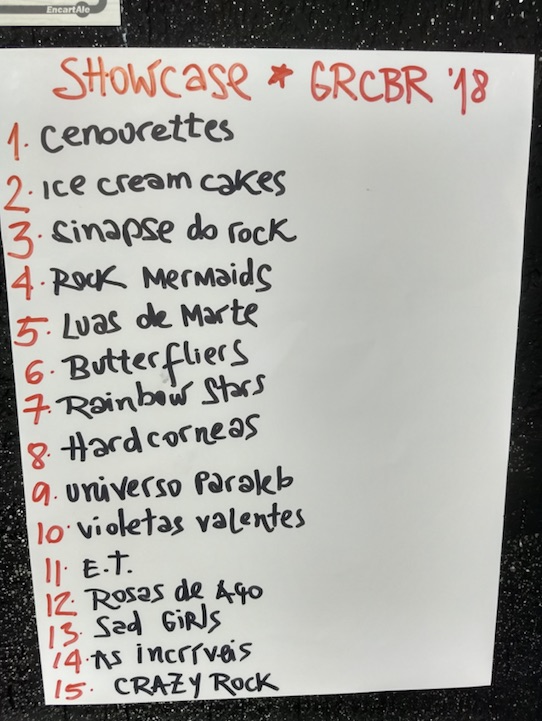 EncartAle
SHOWCASE * GRCBR '18
1. Cenourettes
2. Ice cream cakes
3. Sinapse do rock
4. Rock Mermaids
5. Luas de Marte
6. Butterfliers
7. Rainbow Stars
8. Hardcorneas
9. universo Paralelo
10. violetas valentes
11. E.T.
12. Rosas de Aço
13. Sad GiRls
14. As incríveis
15. CRAZY ROCK